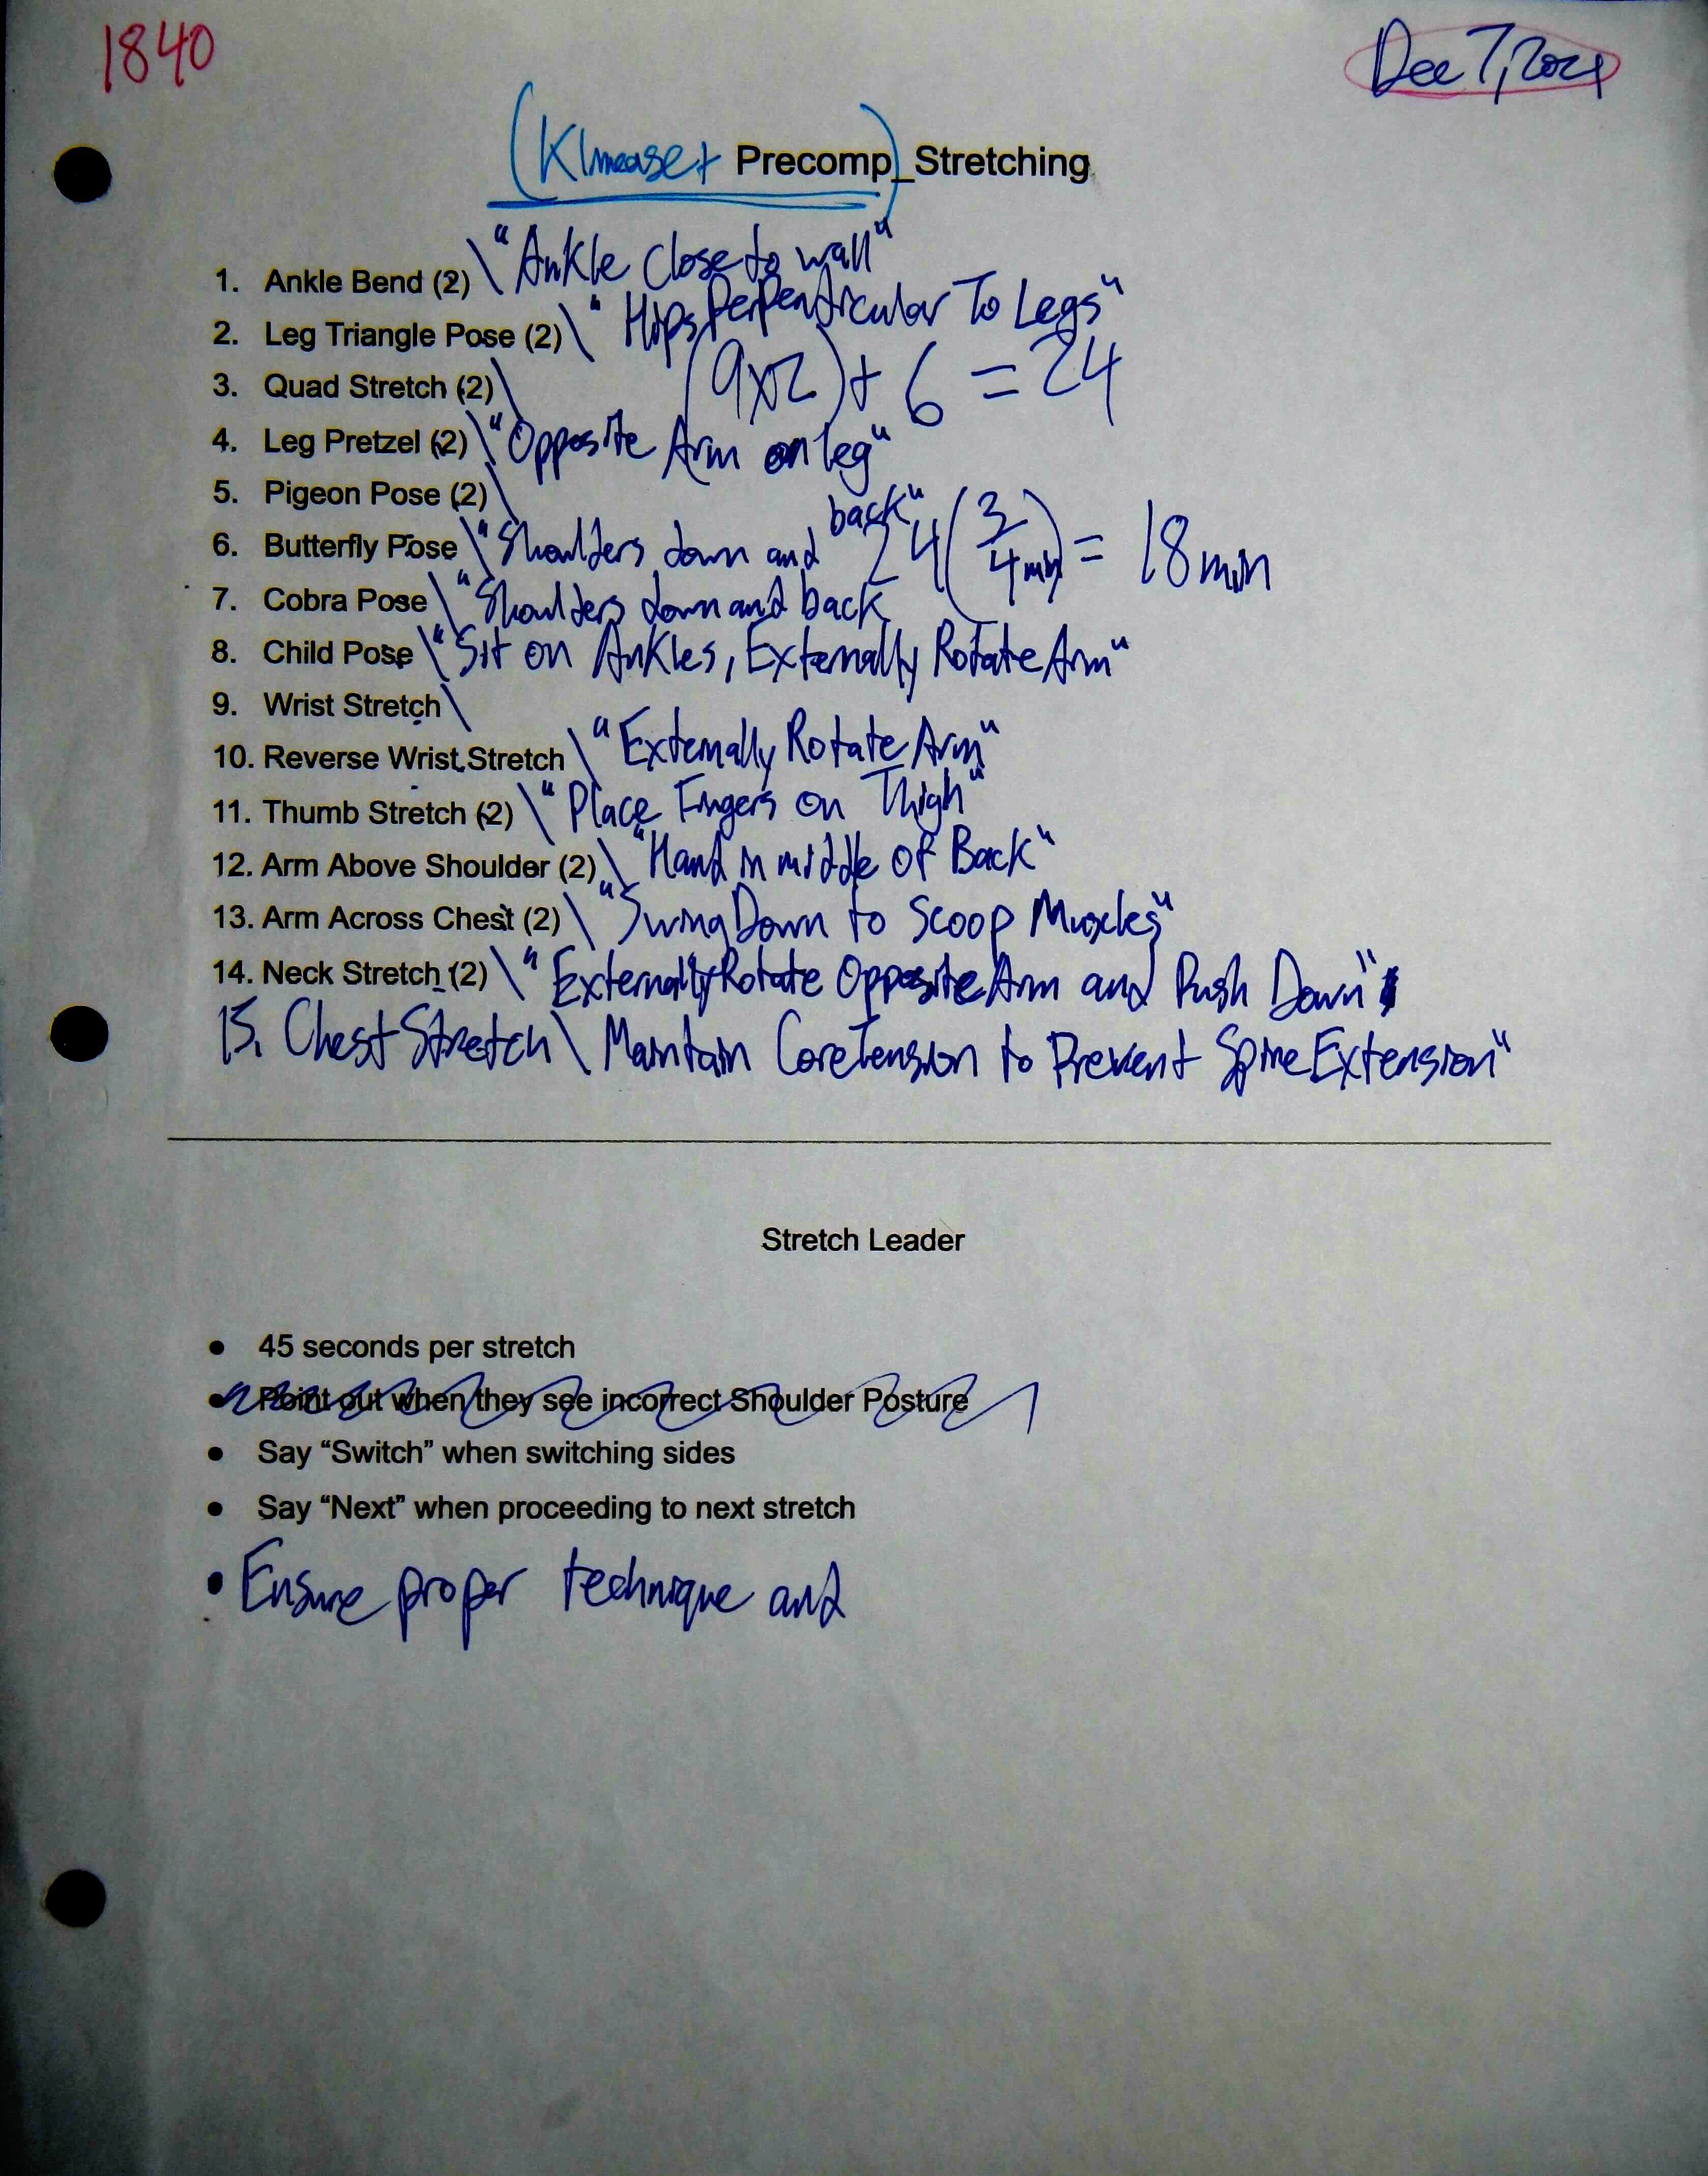 1840
Dec 7, 2024
(Kinease + Precomp)_Stretching
1. Ankle Bend (2) \ "Ankle Close to wall"
2. Leg Triangle Pose (2) \ "Hips Perpendicular To Legs"
3. Quad Stretch (2) \
(9x2) + 6 = 24
4. Leg Pretzel (2) \ "Opposite Arm on leg"
5. Pigeon Pose (2) \
6. Butterfly Pose \ "Shoulders down and back"
24(3/4 min) = 18 min
7. Cobra Pose \ "Shoulders down and back
8. Child Pose \ "Sit on Ankles, Externally Rotate Arm"
9. Wrist Stretch \
10. Reverse Wrist Stretch \ "Externally Rotate Arm"
11. Thumb Stretch (2) \ "Place Fingers on Thigh"
12. Arm Above Shoulder (2) \ "Hand in middle of Back"
13. Arm Across Chest (2) \ "Swing Down to Scoop Muscles"
14. Neck Stretch (2) \ "Externally Rotate Opposite Arm and Push Down"
15. Chest Stretch \ Maintain Core Tension to Prevent Spine Extension"
Stretch Leader
● 45 seconds per stretch
● Point out when they see incorrect Shoulder Posture
● Say “Switch” when switching sides
● Say “Next” when proceeding to next stretch
• Ensure proper technique and